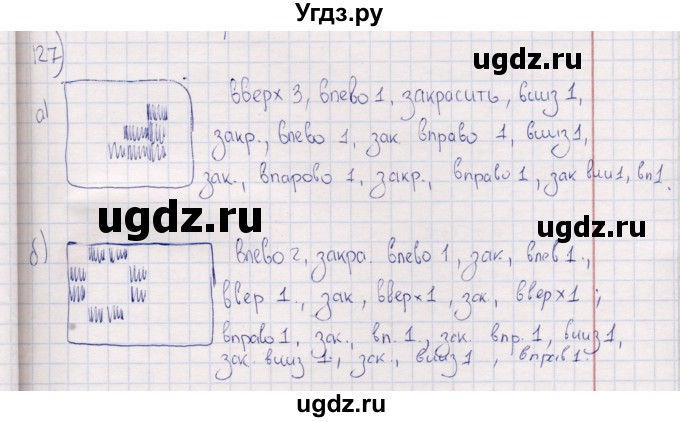 Угдз.ру
27)
ugdz.ru
ugdz.ru
а)
вверх 3, влево 1, закрасить, вниз 1,
закр., влево 1, зак. вправо 1, вниз 1,
зак., впарово 1, закр., вправо 1, зак вни1, вп1.
ugdz.ru
ugdz.ru
б)
влево 2, закра. влево 1, зак., влев 1.,
ввер 1., зак, вверх 1, зак., вверх 1;
вправо 1, зак., вп. 1., зак. впр. 1, вниз 1,
зак. вниз 1, зак., вниз 1, вправ 1.
ugdz.ru